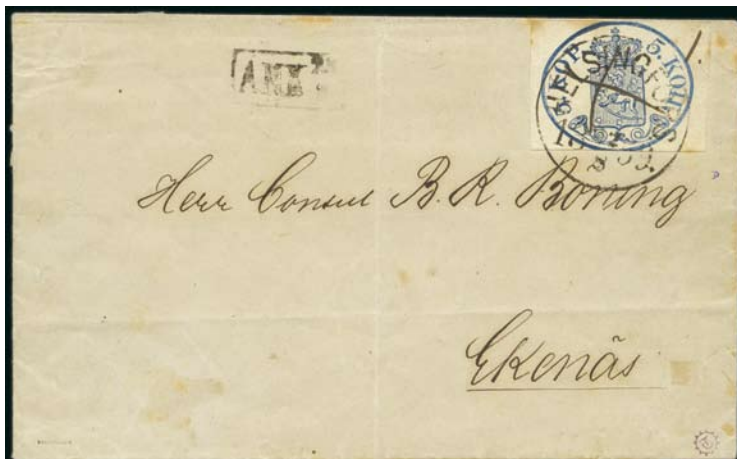 ANK
5. KOP
HELSINGFORS
Herr Consul B. R. Boning
Ekenäs